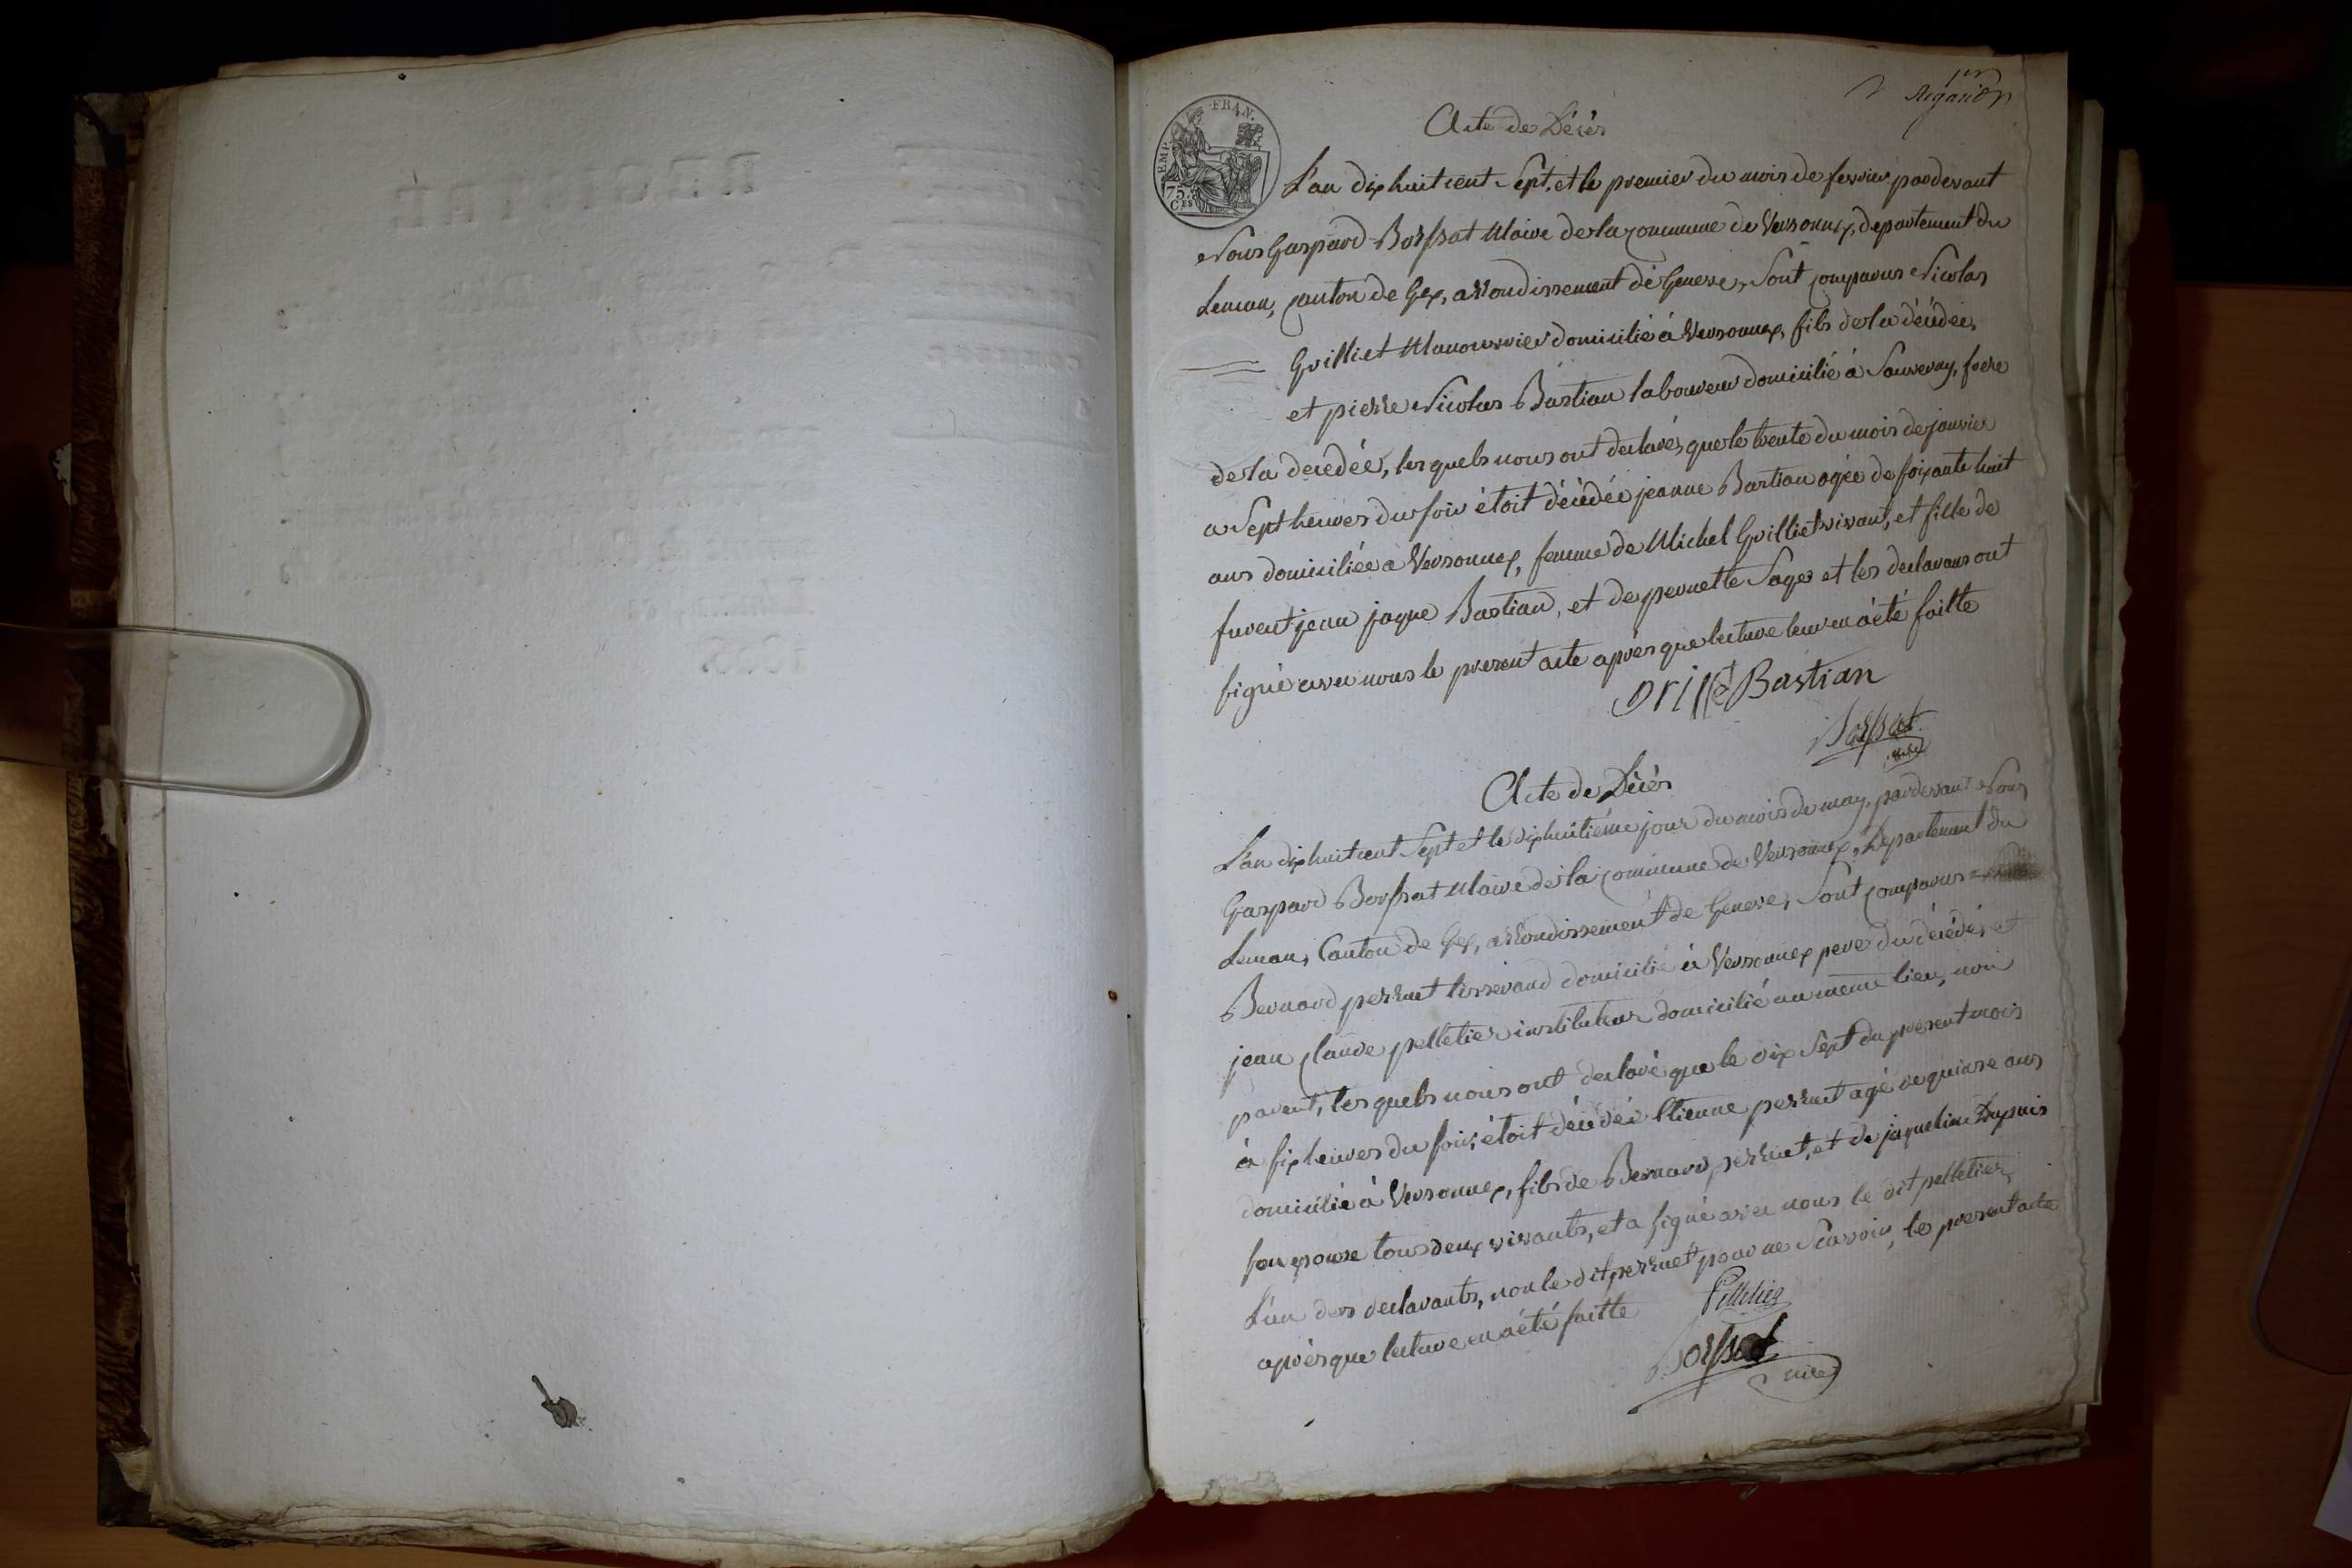 1er
Rigaud
EMP. FRAN.
75
CES
Acte de Décès
L'an dix huit cent Sept, et le premier du mois de fevrier pardevant
Nous Gaspard Borssat Maire de la commune de Versonnex, departement du
Leman, canton de Gex, arrondissement de Geneve, Sont comparus Nicolas
Grilliet Manouvrier domicilié à Versonnex, fils de la décédée,
et pierre Nicolas Bastian laboureur domicilié à Sauverny, frere
de la decedée, lesquels nous ont declarés que le trente du mois de janvier
a Sept heures du soir étoit décédée jeanne Bastian agée de soixante huit
ans domiciliée à Versonnex, femme de Michel Grilliet vivant, et fille de
furent jean jaque Bastian, et de pernette Sage et les declarans ont
signé avec nous le present acte après que lecture leur en a été faitte
Bastian
Borssat
maire
Acte de Décès
L'an dix huit cent Sept et le dix huitième jour du mois de may, pardevant Nous
Gaspard Borssat Maire de la commune de Versonnex, Departement du
Leman, Canton de Gex, arrondissement de Geneve, Sont comparus
Bernard perruet tisserand domicilié à Versonnex pere du décédé, et
jean claude pelletier instituteur domicilié au meme lieu, non
parent, lesquels nous ont declaré que le dix Sept du present mois
à six heures du soir, étoit décédé Etienne perruet agé de quinse ans
domicilié à Versonnex, fils de Bernard perruet, et de jaqueline Dupuis
son epouse tous deux vivants, et a signé avec nous le dit pelletier,
L'un des declarants, non le dit perruet pour ne Scavoir, le present acte
après que lecture en a été faitte
Pelletier
Borssat
maire